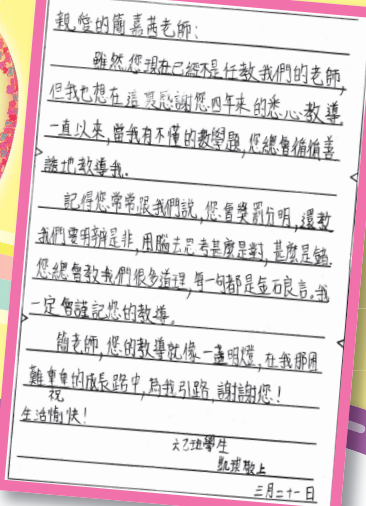 親愛的簡嘉茜老師：
雖然您現在已經不是任教我們的老師，
但我也想在這裏感謝您四年來的悉心教導。
一直以來，當我有不懂的數學題，您總會循循善
誘地教導我。
記得您常常跟我們說，您會獎罰分明，還教
我們要明辨是非，用腦去思考甚麼是對，甚麼是錯。
您總會教我們很多道理，每一句都是金石良言。我
一定會謹記您的教導。
簡老師，您的教導就像一盞明燈，在我那困
難重重的成長路中，為我引路，謝謝您！
祝
生活愉快！
六乙班學生
敬上
三月二十一日